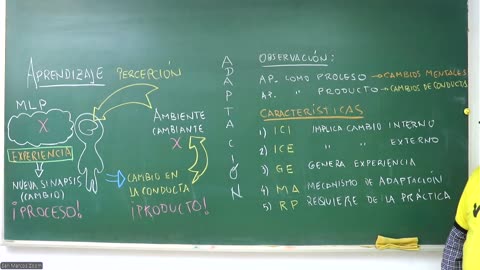 APRENDIZAJE
PERCEPCIÓN
MLP
X
EXPERIENCIA
NUEVA SINAPSIS
(CAMBIO)
¡PROCESO!
AMBIENTE
CAMBIANTE
X
CAMBIO EN
LA CONDUCTA
¡PRODUCTO!
ADAPTACIÓN
OBSERVACIÓN:
AP. COMO PROCESO → CAMBIOS MENTALES
AP. " PRODUCTO → CAMBIOS DE CONDUCTA
CARACTERÍSTICAS
1) ICI IMPLICA CAMBIO INTERNO
2) ICE " " EXTERNO
3) GE GENERA EXPERIENCIA
4) MA MECANISMO DE ADAPTACIÓN
5) RP REQUIERE DE LA PRÁCTICA
San Marcos Zoom